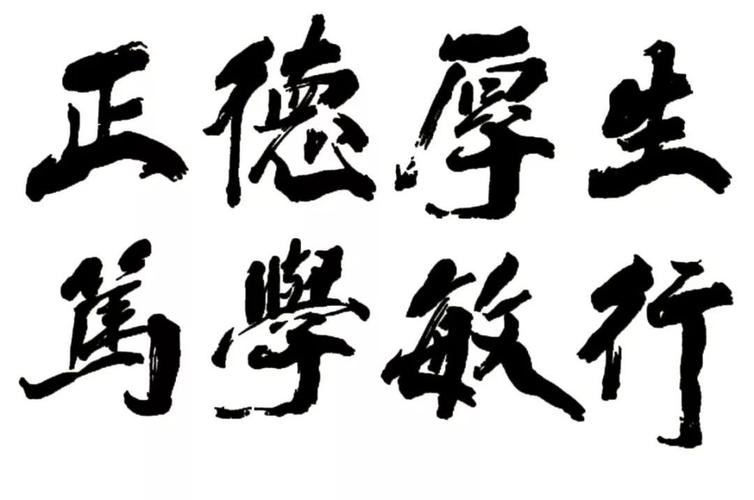 正德厚生
篤學敏行